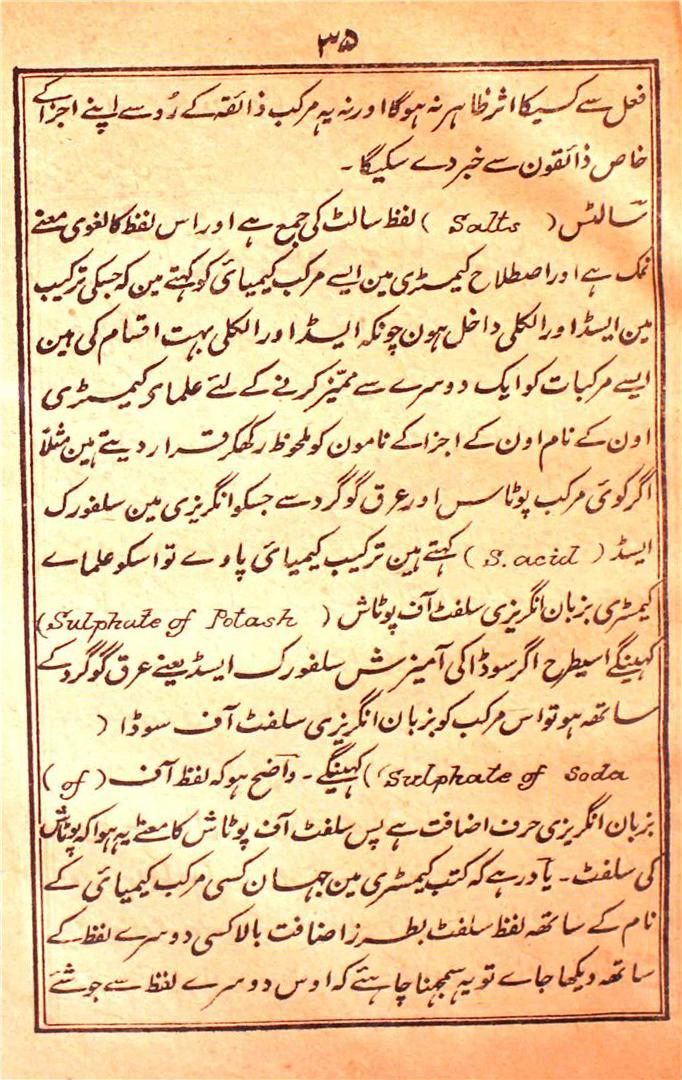 ۳۵
فعل سے کسیکا اثر ظاہر نہ ہوگا اور نہ یہ مرکب ذائقہ کے رُو سے اپنے اجزا کے
خاص ذائقون سے خبر دے سکیگا ۔
سالٹس ( Salts ) لفظ سالٹ کی جمع ہے اور اس لفظ کا لغوی معنے
نمک ہے اور اصطلاح کیمسٹری مین ایسے مرکب کیمیائی کو کہتے مین کہ جسکی ترکیب
مین ایسڈ اور الکلی داخل ہون چونکہ ایسڈ اور الکلی بہت اقسام کی ہین
ایسے مرکبات کو ایک دوسرے سے ممیّز کرنے کے لئے علمای کیمسٹری
اون کے نام اون کے اجزا کے نامون کو ملحوظ رکھکر قرار دیتے ہین مثلاً
اگر کوئی مرکب پوٹاس اور عرق گوگرد سے جسکو انگریزی مین سلفورک
ایسڈ ( S. acid ) کہتے ہین ترکیب کیمیائی پاوے تو اسکو علماے
کیمٹری بزبان انگریزی سلفٹ آف پوٹاش ( Sulphate of Potash )
کہینگے اسیطرح اگر سوڈا کی آمیزش سلفورک ایسڈ یعنے عرق گوگرد کے
ساتھہ ہو تو اس مرکب کو بزبان انگریزی سلفٹ آف سوڈا (
Sulphate of Soda ) کہینگے ۔ واضح ہو کہ لفظ آف ( of )
بزبان انگریزی حرف اضافت ہے پس سلفٹ آف پوٹاش کا معنے یہ ہوا کہ پوٹاش
کی سلفٹ ۔ یاد رہے کہ کتب کیمسٹری مین جہان کسی مرکب کیمیائی کے
نام کے ساتھہ لفظ سلفٹ بطرز اضافت بالا کسی دوسرے لفظ کے
ساتھہ دیکھا جاے تو یہ سمجہنا چاہئے کہ اوس دوسرے لفظ سے جو شئے